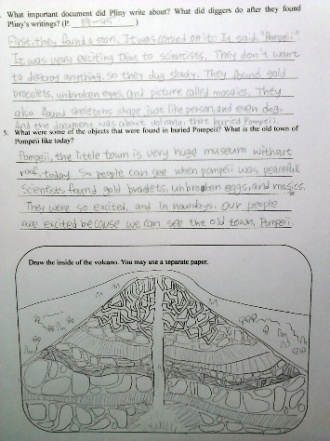 What important document did Pliny write about? What did diggers do after they found
Pliny's writings? (P. )
First, they found a coin. It was carved on it. It said "Pompeii."
It was very exciting time to scientists. They don't want
to destroy anything, so they dug slowly. They found gold
bracelets, unbroken eggs, and picture called mosaics. They
also found skeletons shape just like person, and even dog.
And the document was about volcano, that buried Pompeii.
5. What were some of the objects that were found in buried Pompeii? What is the old town of
Pompeii like today?
Pompeii, the little town is very huge museum without
roof today. So people can see when pompeii was peaceful.
Scientists found gold bracelets, unbroken eggs, and mosics.
They were so excited, and in nowadays, our people
are excited because we can see the old town, Pompeii.
Draw the inside of the volcano. You may use a separate paper.